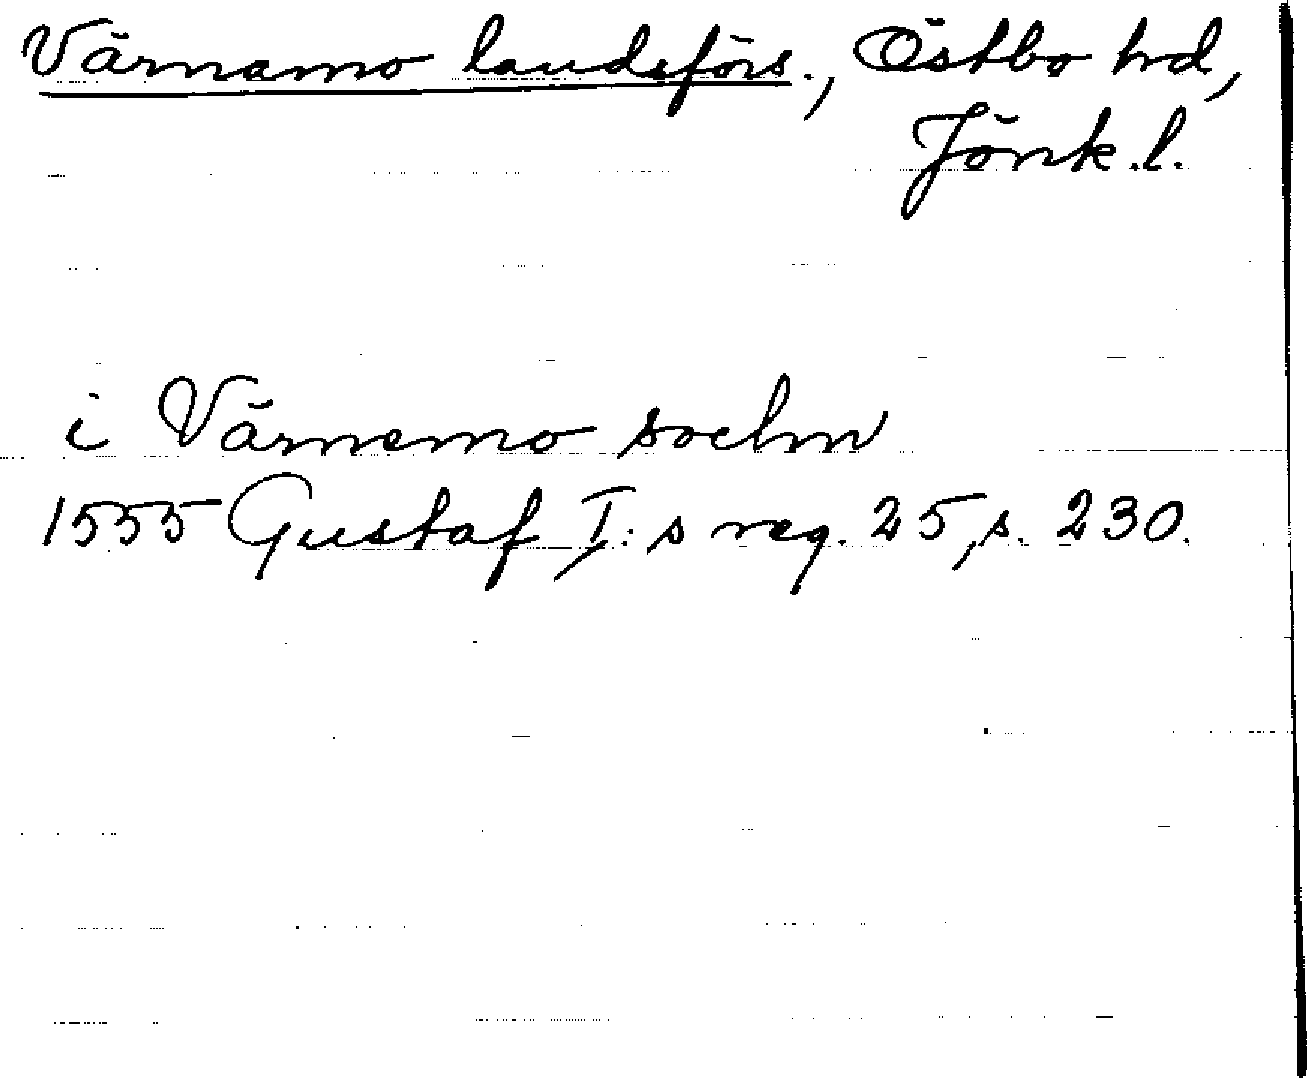 Värnamo landsförs., Östbo hd,
Jönk.l.
i Värnemo sochn
1555 Gustaf I:s reg. 25, s. 230.